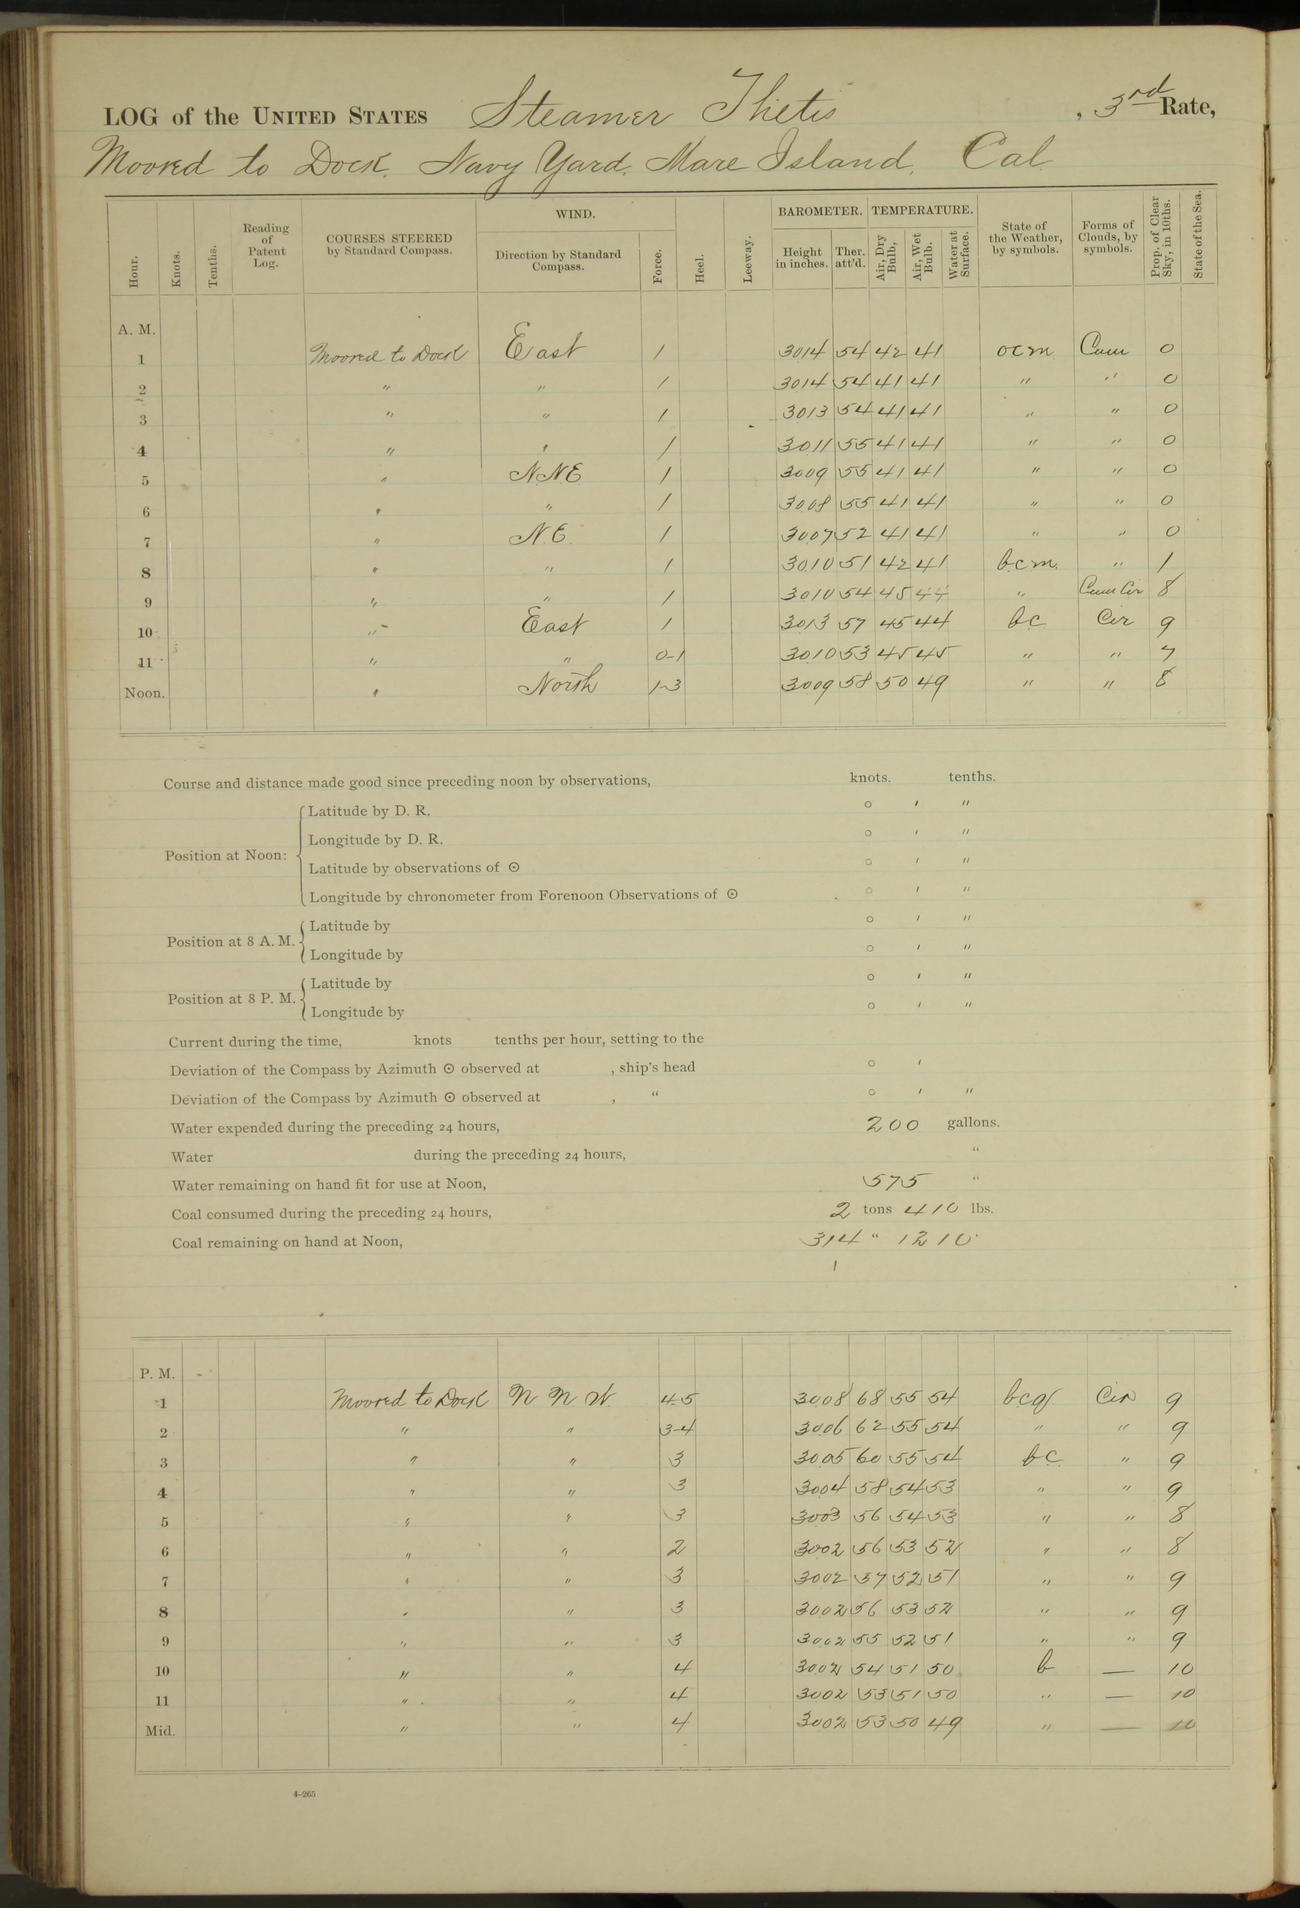 LOG of the UNITED STATES Steamer Thetis, 3rd Rate,
Moored to Dock. Navy Yard. Mare Island. Cal
Hour. Knots. Tenths. Reading of Patent Log. COURSES STEERED by Standard Compass. WIND. Direction by Standard Compass. Force. Heel. Leeway. BAROMETER. Height in inches. Ther. att'd. TEMPERATURE. Air, Dry Bulb, Air, Wet Bulb. Water at Surface. State of the Weather, by symbols. Forms of Clouds, by symbols. Prop. of Clear Sky, in 10ths. State of the Sea.
A. M.
1 Moored to Dock East 1 3014 54 42 41 ocm Cum 0
2 " " 1 3014 54 41 41 " " 0
3 " " 1 3013 54 41 41 " " 0
4 " " 1 3011 55 41 41 " " 0
5 " N.N.E 1 3009 55 41 41 " " 0
6 " " 1 3008 55 41 41 " " 0
7 " N.E. 1 3007 52 41 41 " " 0
8 " " 1 3010 51 42 41 bcm. " 1
9 " " 1 3010 54 45 44 " Cum Cir 8
10 " East 1 3013 57 45 44 bc Cir 9
11 " " 0-1 3010 53 45 45 " " 7
Noon. " North 1-3 3009 58 50 49 " " 8
Course and distance made good since preceding noon by observations, knots. tenths.
Position at Noon:
Latitude by D. R. ○ ′ ″
Longitude by D. R. ○ ′ ″
Latitude by observations of ⊙ ○ ′ ″
Longitude by chronometer from Forenoon Observations of ⊙ ○ ′ ″
Position at 8 A. M.
Latitude by ○ ′ ″
Longitude by ○ ′ ″
Position at 8 P. M.
Latitude by ○ ′ ″
Longitude by ○ ′ ″
Current during the time, knots tenths per hour, setting to the
Deviation of the Compass by Azimuth ⊙ observed at , ship's head ○ ′
Deviation of the Compass by Azimuth ⊙ observed at , " ○ ′ ″
Water expended during the preceding 24 hours, 200 gallons.
Water during the preceding 24 hours, "
Water remaining on hand fit for use at Noon, 575 "
Coal consumed during the preceding 24 hours, 2 tons 410 lbs.
Coal remaining on hand at Noon, 314 " 1210
P. M.
1 Moored to Dock N N W 4-5 3008 68 55 54 bcq Cir 9
2 " " 3-4 3006 62 55 54 " " 9
3 " " 3 3005 60 55 54 bc " 9
4 " " 3 3004 58 54 53 " " 9
5 " " 3 3003 56 54 53 " " 8
6 " " 2 3002 56 53 52 " " 8
7 " " 3 3002 57 52 51 " " 9
8 " " 3 3002 56 53 52 " " 9
9 " " 3 3002 55 52 51 " " 9
10 " " 4 3002 54 51 50 b — 10
11 " " 4 3002 53 51 50 " — 10
Mid. " " 4 3002 53 50 49 " — 10
4-265